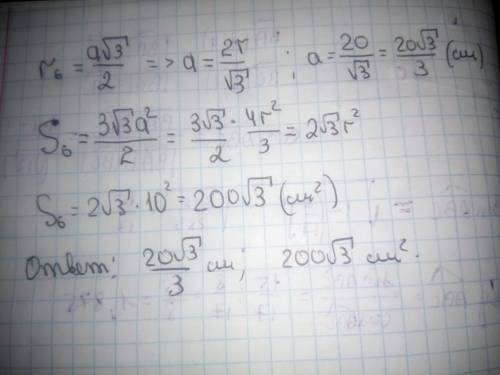 r₆ = a√3/2 => a = 2r/√3 ; a = 20/√3 = 20√3/3 (см)
S₆ = 3√3a²/2 = 3√3/2 · 4r²/3 = 2√3r²
S₆ = 2√3 · 10² = 200√3 (см²)
Ответ: 20√3/3 см; 200√3 см².